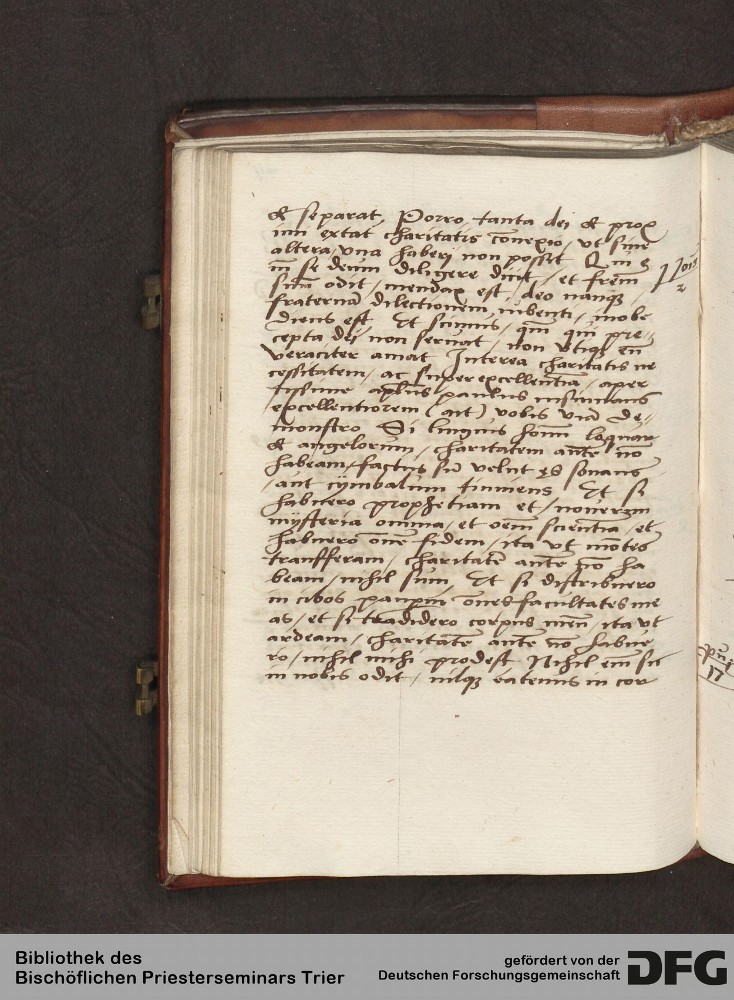 & separat, Porro tanta dei & prox
imi extat charitatis cōnexio, ut sine
altera, una haberi non possit Qui
se deum diligere dicit, et frēm
suū odit, mendax est, deo nanque
fraternā dilectionem iubenti, inobe
diens est. Et scimus, qm̄ qui pre-
cepta dei non seruat, non utique
veraciter amat Interea charitatis ne
cessitatem, ac superexcellentiā, aper
tissime apl̄us paulus insinuans
excellentiorem (ait) vobis viā de-
monstro Si linguis hom̄ loquar
& angelorum, charitatem aūte nō
habeam, factus sū velut ęs sonans
aut cymbalum tinniens Et si
habuero prophetiam et nouerim
mysteria omnia, et oēm scientiā, et
habuero omē fidem, ita ut mōtes
transfferam, charitatē aūte nō ha
beam, nihil sum, Et si distribuero
in cibos paupm̄ ōnes facultates me
as, et si tradidero corpus meū, ita ut
ardeam, charitatē aūte nō habue
ro, nihil mihi prodest Nihil em̄ sic
in nobis odit, nilque eatenus in cor
1 Jois
2
17
Bibliothek des
Bischöflichen Priesterseminars Trier
gefördert von der
Deutschen Forschungsgemeinschaft
DFG